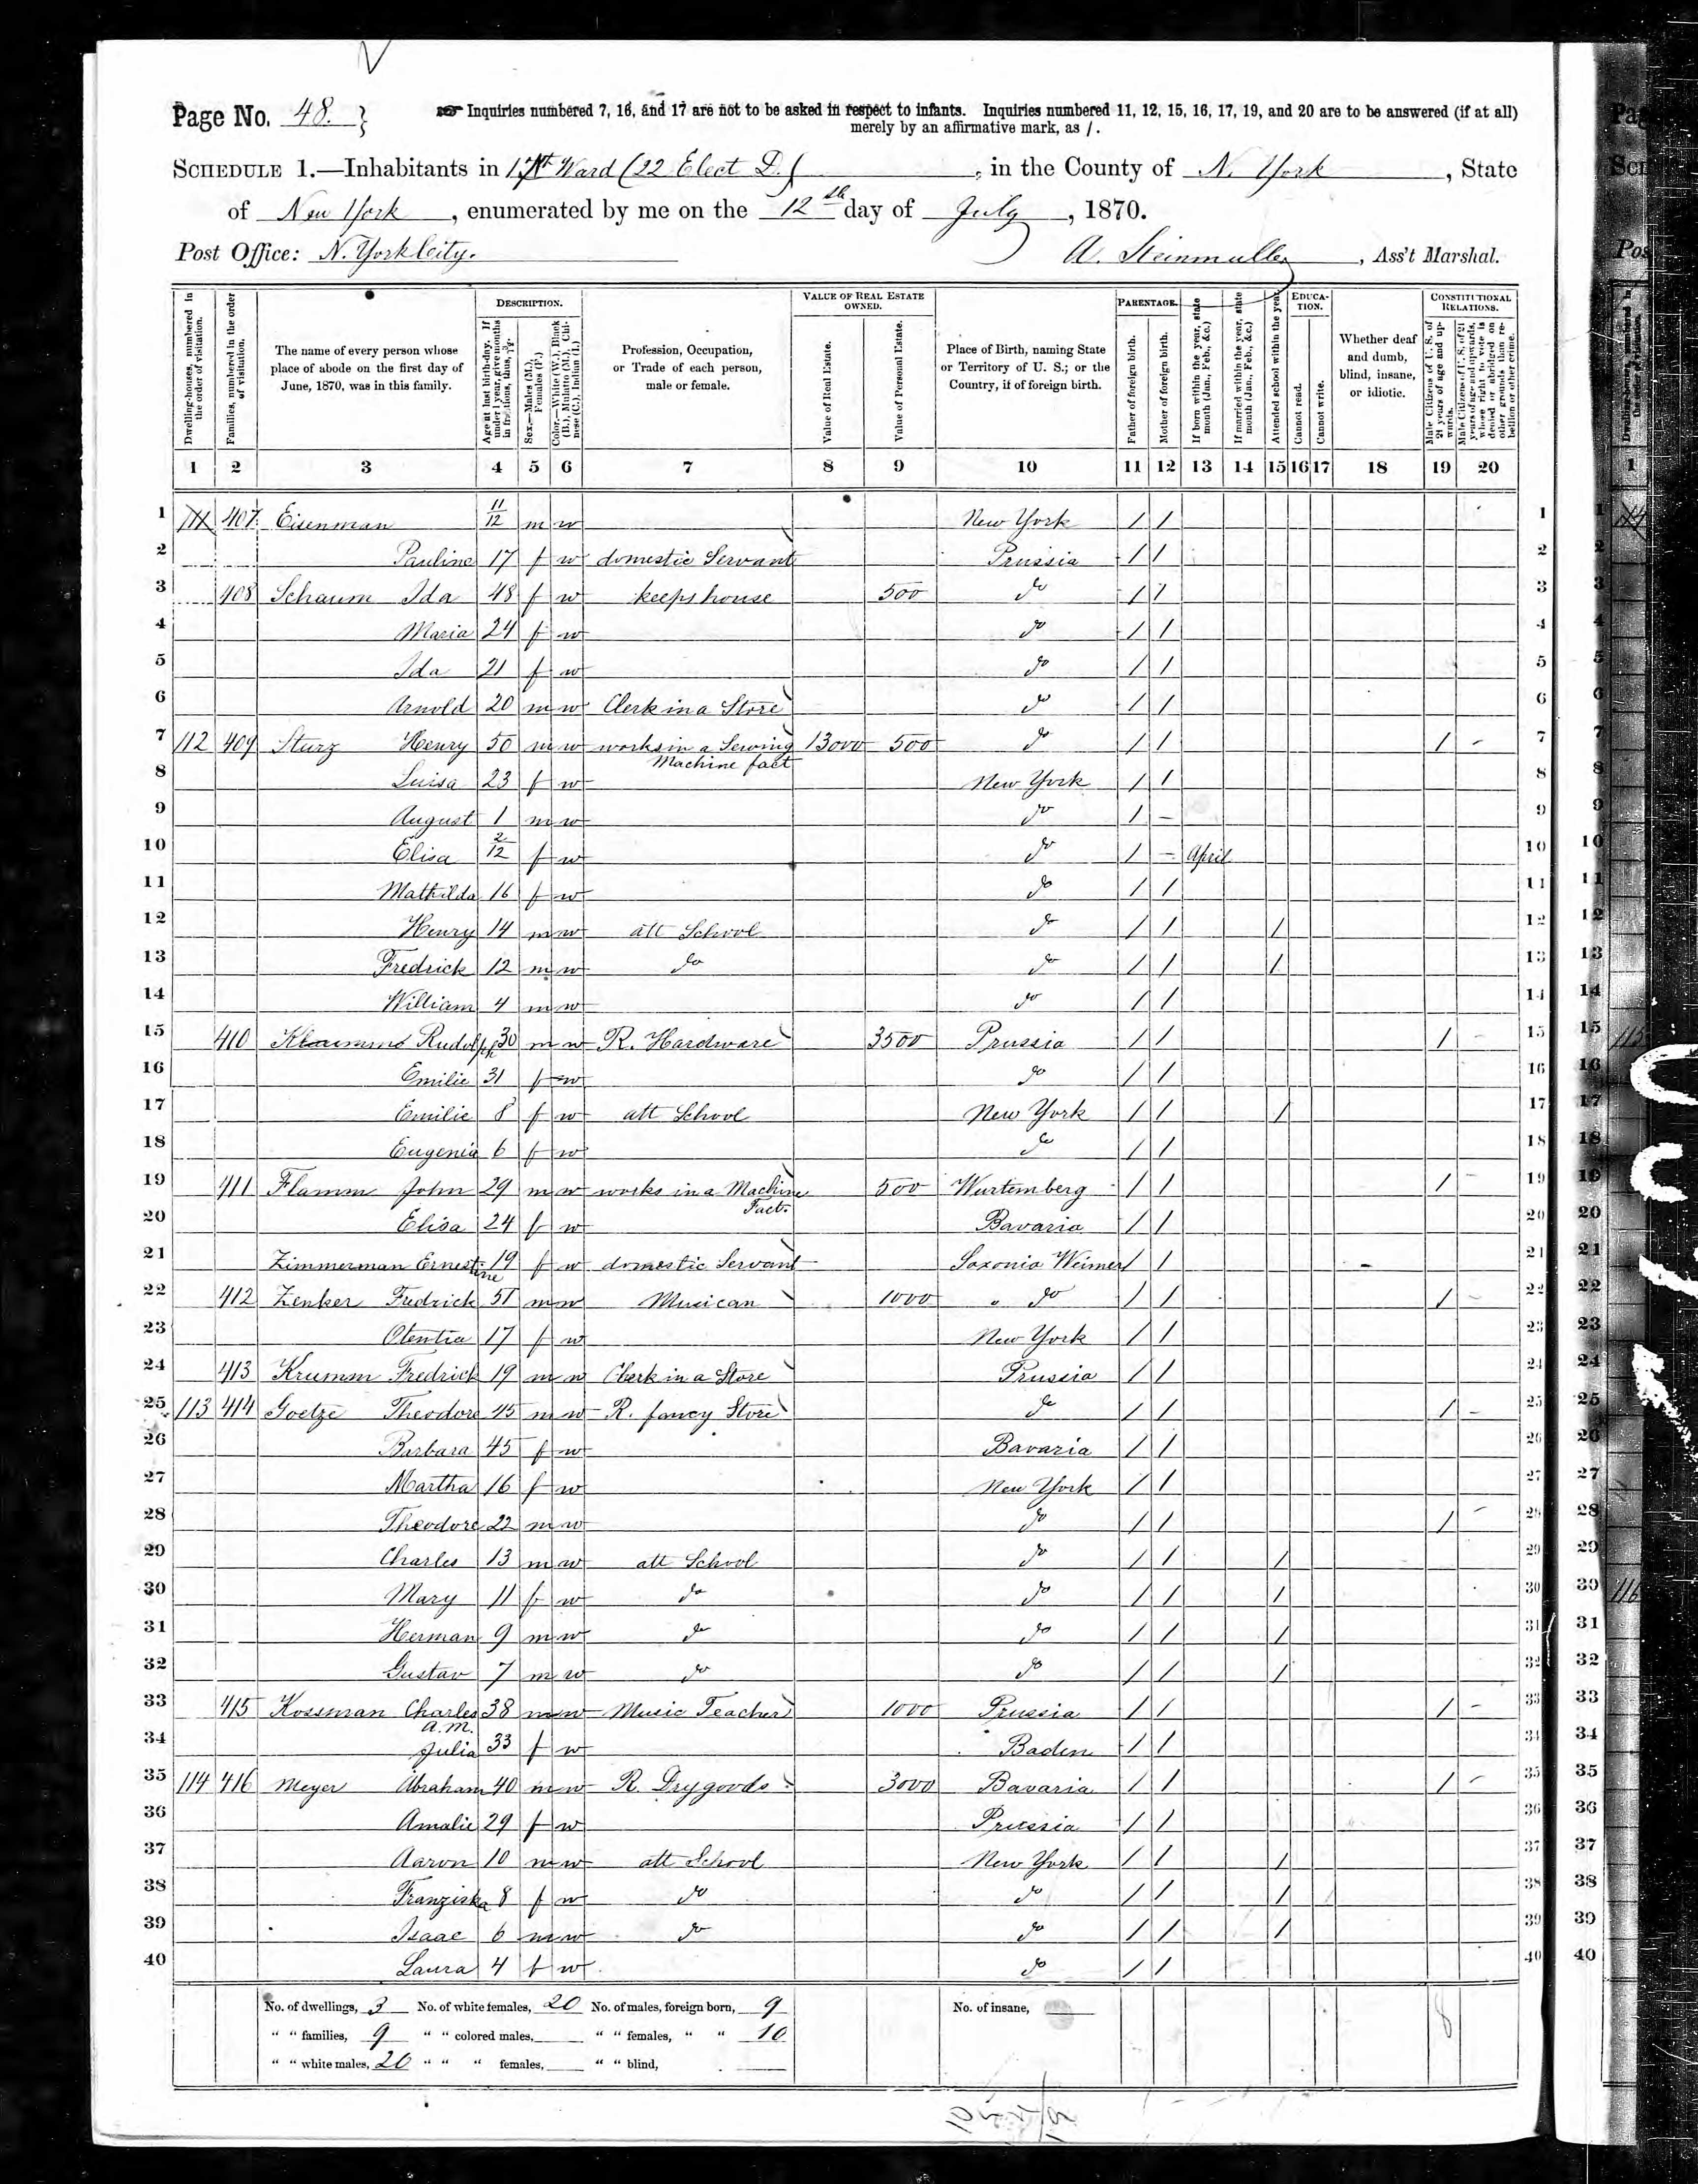 Page No. 48.
Inquiries numbered 7, 16, and 17 are not to be asked in respect to infants. Inquiries numbered 11, 12, 15, 16, 17, 19, and 20 are to be answered (if at all)
merely by an affirmative mark, as /.
SCHEDULE 1.—Inhabitants in 17th Ward (22 Elect D.), in the County of N. York, State
of New York, enumerated by me on the 12th day of July, 1870.
Post Office: N. York City. A. Steinmuller, Ass't Marshal.
Dwelling-houses, numbered in the order of visitation.
Families, numbered in the order of visitation.
The name of every person whose place of abode on the first day of June, 1870, was in this family.
DESCRIPTION.
Age at last birth-day. If under 1 year, give months in fractions, thus, 3/12.
Sex.—Males (M.), Females (F.)
Color.—White (W.), Black (B.), Mulatto (M.), Chinese (C.), Indian (I.)
Profession, Occupation, or Trade of each person, male or female.
VALUE OF REAL ESTATE OWNED.
Value of Real Estate.
Value of Personal Estate.
Place of Birth, naming State or Territory of U. S.; or the Country, if of foreign birth.
PARENTAGE.
Father of foreign birth.
Mother of foreign birth.
If born within the year, state month (Jan., Feb., &c.)
If married within the year, state month (Jan., Feb., &c.)
Attended school within the year.
EDUCATION.
Cannot read.
Cannot write.
Whether deaf and dumb, blind, insane, or idiotic.
CONSTITUTIONAL RELATIONS.
Male Citizens of U. S. of 21 years of age and upwards.
Male Citizens of U. S. of 21 years of age and upwards, whose right to vote is denied or abridged on other grounds than rebellion or other crime.
1 2 3 4 5 6 7 8 9 10 11 12 13 14 15 16 17 18 19 20
1 111 407 Eisenman 11/12 m w New York / / 1
2 Pauline 17 f w domestic Servant Prussia / / 2
3 408 Schaum Ida 48 f w keeps house 500 do / / 3
4 Maria 24 f w do / / 4
5 Ida 21 f w do / / 5
6 Arnold 20 m w Clerk in a Store do / / 6
7 112 409 Sturz Henry 50 m w works in a Sewing Machine fact 13000 500 do / / / - 7
8 Luisa 23 f w New York / / 8
9 August 1 m w do / - 9
10 Elisa 2/12 f w do / - April 10
11 Mathilda 16 f w do / / 11
12 Henry 14 m w att School do / / / 12
13 Fredrick 12 m w do do / / / 13
14 William 4 m w do / / 14
15 410 Rudolph 30 m w R. Hardware 3500 Prussia / / / - 15
16 Emilie 31 f w do / / 16
17 Emilie 8 f w att School New York / / / 17
18 Eugenia 6 f w do / / 18
19 411 Flamm John 29 m w works in a Machine Fact. 500 Wurtemberg / / / - 19
20 Elisa 24 f w Bavaria / / 20
21 Zimmerman Ernestine 19 f w domestic Servant Saxonia Weimer / / 21
22 412 Zenker Fredrick 51 m w Musican 1000 " do / / / - 22
23 Otentia 17 f w New York / / 23
24 413 Krumm Fredrick 19 m w Clerk in a Store Prussia / / 24
25 113 414 Goetze Theodore 45 m w R. fancy Store do / / / - 25
26 Barbara 45 f w Bavaria / / 26
27 Martha 16 f w New York / / 27
28 Theodore 22 m w do / / / - 28
29 Charles 13 m w att School do / / / 29
30 Mary 11 f w do do / / / 30
31 Herman 9 m w do do / / / 31
32 Gustav 7 m w do do / / / 32
33 415 Kossman Charles A.M. 38 m w Music Teacher 1000 Prussia / / / - 33
34 Julia 33 f w Baden / / 34
35 114 416 Meyer Abraham 40 m w R. Drygoods 3000 Bavaria / / / - 35
36 Amalie 29 f w Prussia / / 36
37 Aaron 10 m w att School New York / / / 37
38 Franziska 8 f w do do / / / 38
39 Isaac 6 m w do do / / / 39
40 Laura 4 f w do / / 40
No. of dwellings, 3 No. of white females, 20 No. of males, foreign born, 9 No. of insane, 8
" " families, 9 " " colored males, " " females, " " 10
" " white males, 20 " " " females, " " blind,